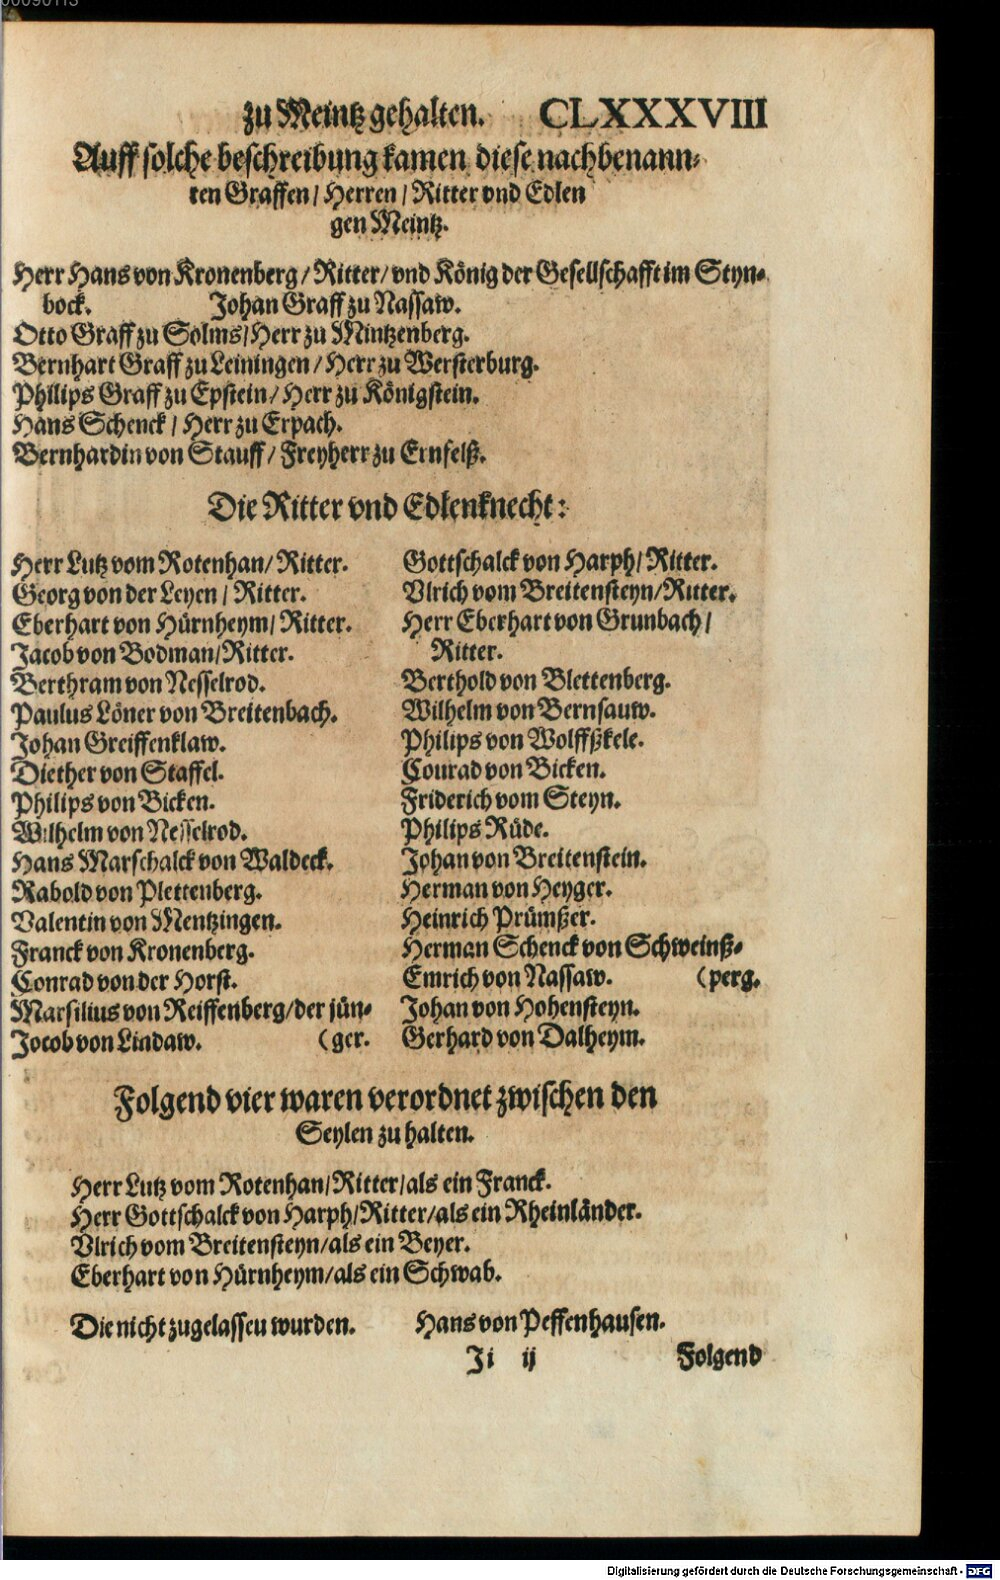 00090113
zu Meintz gehalten. CLXXXVIII
Auff solche beschreibung kamen diese nachbenann-
ten Graffen / Herren / Ritter vnd Edlen
gen Meintz.
Herr Hans von Kronenberg / Ritter / vnd König der Gesellschafft im Styn-
bock. Johan Graff zu Nassaw.
Otto Graff zu Solms / Herr zu Mintzenberg.
Bernhart Graff zu Leiningen / Herr zu Wersterburg.
Philips Graff zu Epstein / Herr zu Königstein.
Hans Schenck / Herr zu Erpach.
Bernhardin von Stauff / Freyherr zu Ernfelß.
Die Ritter vnd Edlenknecht:
Herr Lutz vom Rotenhan / Ritter.
Georg von der Leyen / Ritter.
Eberhart von Hürnheym / Ritter.
Jacob von Bodman / Ritter.
Berthram von Nesselrod.
Paulus Löner von Breitenbach.
Johan Greiffenklaw.
Diether von Staffel.
Philips von Bicken.
Wilhelm von Nesselrod.
Hans Marschalck von Waldeck.
Rabold von Plettenberg.
Valentin von Mentzingen.
Franck von Kronenberg.
Conrad von der Horst.
Marsilius von Reiffenberg / der jün-
Jocob von Lindaw. (ger.
Gottschalck von Harph / Ritter.
Vlrich vom Breitensteyn / Ritter.
Herr Eberhart von Grunbach /
Ritter.
Berthold von Blettenberg.
Wilhelm von Bernsauw.
Philips von Wolffßkele.
Courad von Bicken.
Friderich vom Steyn.
Philips Rüde.
Johan von Breitenstein.
Herman von Heyger.
Heinrich Prümßer.
Herman Schenck von Schweinß-
Emrich von Nassaw. (perg.
Johan von Hohensteyn.
Gerhard von Dalheym.
Folgend vier waren verordnet zwischen den
Seylen zu halten.
Herr Lutz vom Rotenhan / Ritter / als ein Franck.
Herr Gottschalck von Harph / Ritter / als ein Rheinländer.
Vlrich vom Breitensteyn / als ein Beyer.
Eberhart von Hürnheym / als ein Schwab.
Die nicht zugelasseu wurden. Hans von Peffenhausen.
Ji ij Folgend
Digitalisierung gefördert durch die Deutsche Forschungsgemeinschaft - DFG